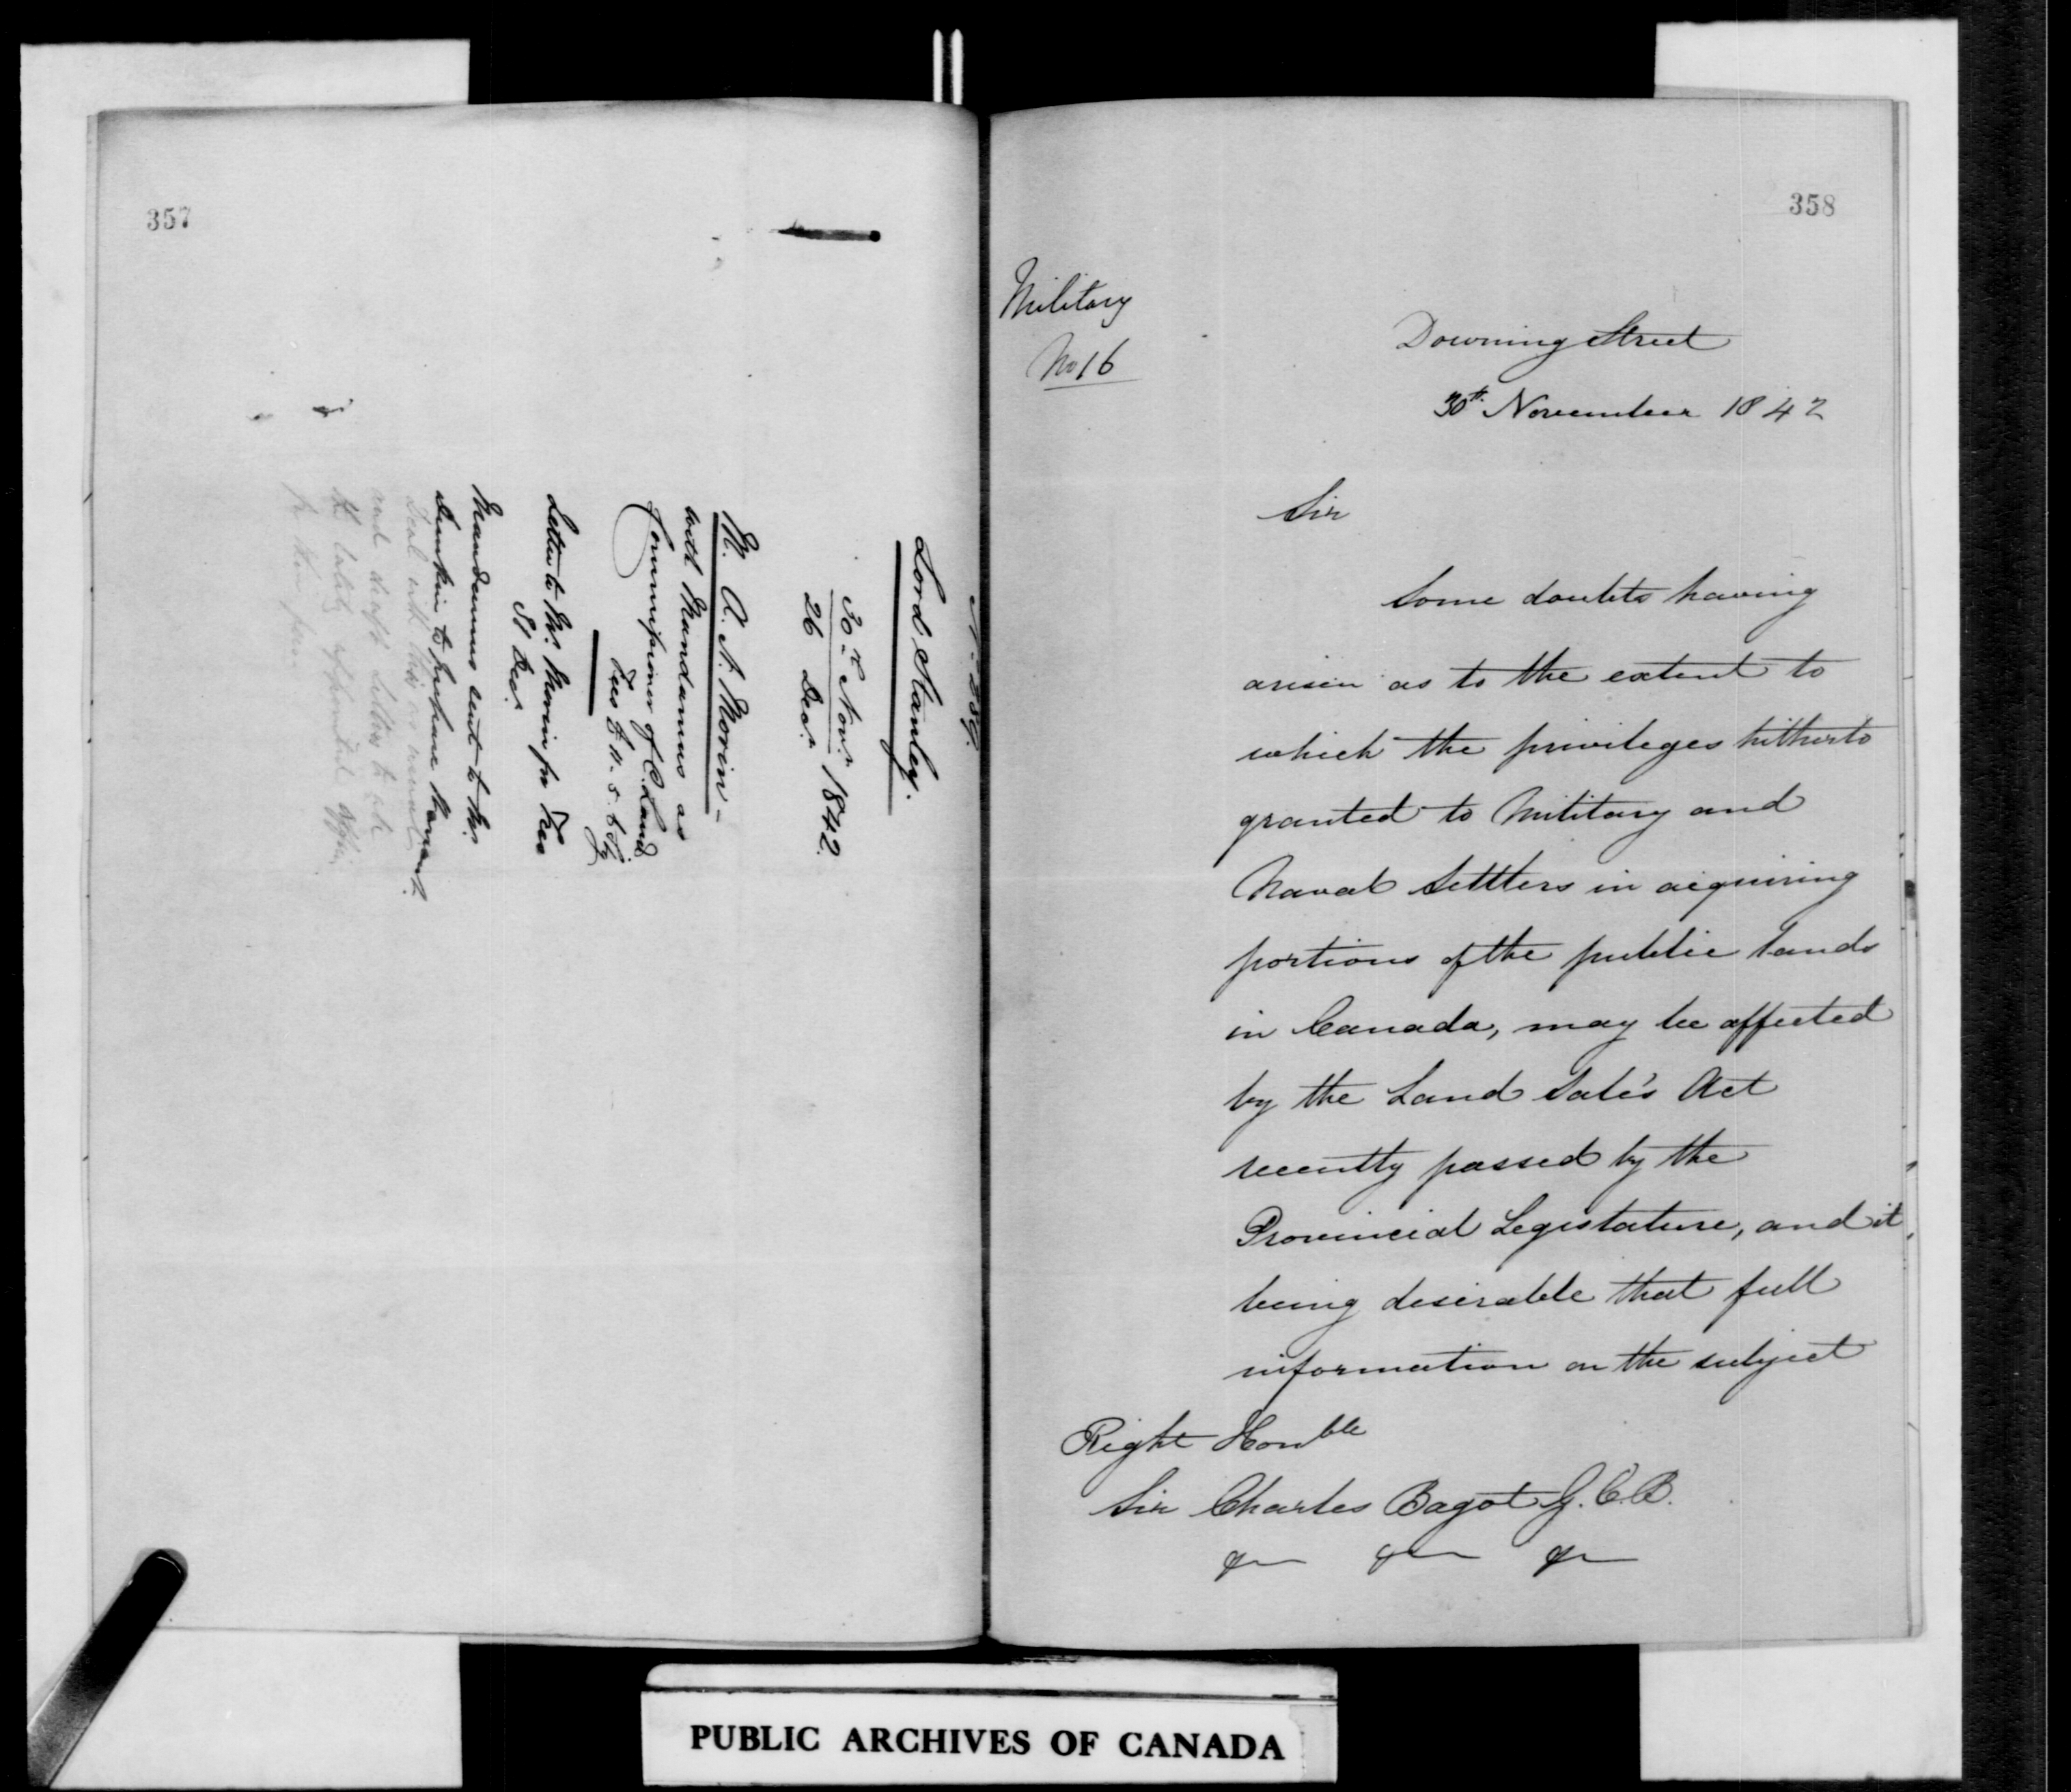 357
Lord Stanley.
30th Novr.
26 Decr. 1842.
M. A. N. Morin -
with Mandamus as
Commissioner of C. Land
Letter to Mr. Morin for Fees
31 Decr
Mandamus sent to Mr.
358
Military
No 16
Downing Street
30th November 1842
Sir
Some doubts having
arisen as to the extent to
which the privileges hitherto
granted to Military and
Naval Settlers in acquiring
portions of the public lands
in Canada, may be affected
by the Land Sale's Act
recently passed by the
Provincial Legislature, and it
being desirable that full
information on the subject
Right Honble
Sir Charles Bagot G.C.B.
PUBLIC ARCHIVES OF CANADA